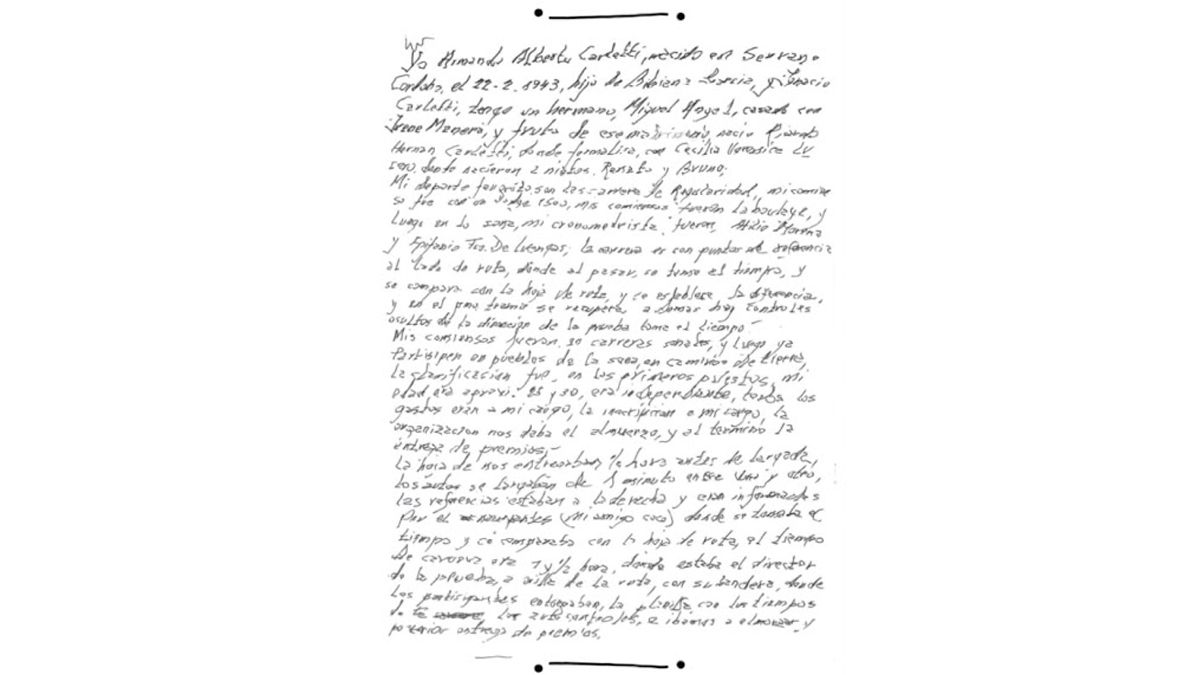 Yo Armando Alberto Carletti, nacido en Serrano
Cordoba, el 22-2-1943, hijo de Bibiana Lucia, y Ignacio
Carletti, tengo un hermano, Miguel Angel, casado con
Irene Manera, y fruto de ese matrimonio, nacio Ricardo
Hernan Carletti, donde formaliza, con Cecilia Veronica Lu
cero, donde nacieron 2 nietos. Renato y Bruno;
Mi deporte favorito son las carrera de Regularidad, mi comien
so fue con un Dodge 1500, mis comiensos fueron Laboulaye, y
Luego en la zona, mi cronometrista fueron, Atilio
y Epifanio Fco. De Luengas; la carrera es con puntos de referencia
al lado de ruta, donde al pasar, se toma el tiempo, y
se compara con la hoja de ruta, y se establece la diferencia,
y en el tramo se recupera, a demas hay controles
ocultos de la direccion de la prueba toma el tiempo -
Mis comiensos fueron. 10 carreras zonales, y luego ya
Partisipen en pueblos de la zona, en caminos de tierra,
la clasificacion fue, en los primeros puestos, mi
edad era aproxi. 25 y 30, era independiente, todos los
gastos eran a mi cargo, la inscripcion a mi cargo, la
organizacion nos daba el almuerzo, y al termino la
entrega de premios;-
La hoja de nos entregaban ½ hora antes de largada,
los autos se largaban de 1 minuto entre uno y otro,
las referencias estaban a la derecha y eran informados
Por el (Mi amigo coco) donde se tomaba el
tiempo y se comparaba con la hoja de ruta, el tiempo
De carrera era 1 y ½ hora, donde estaba el director
de la prueba, a orilla de la ruta, con su bandera, donde
Los participantes entregaban, la planilla con los tiempos
de los autocontroles, e ibamos a almorzar y
posterior entrega de premios.